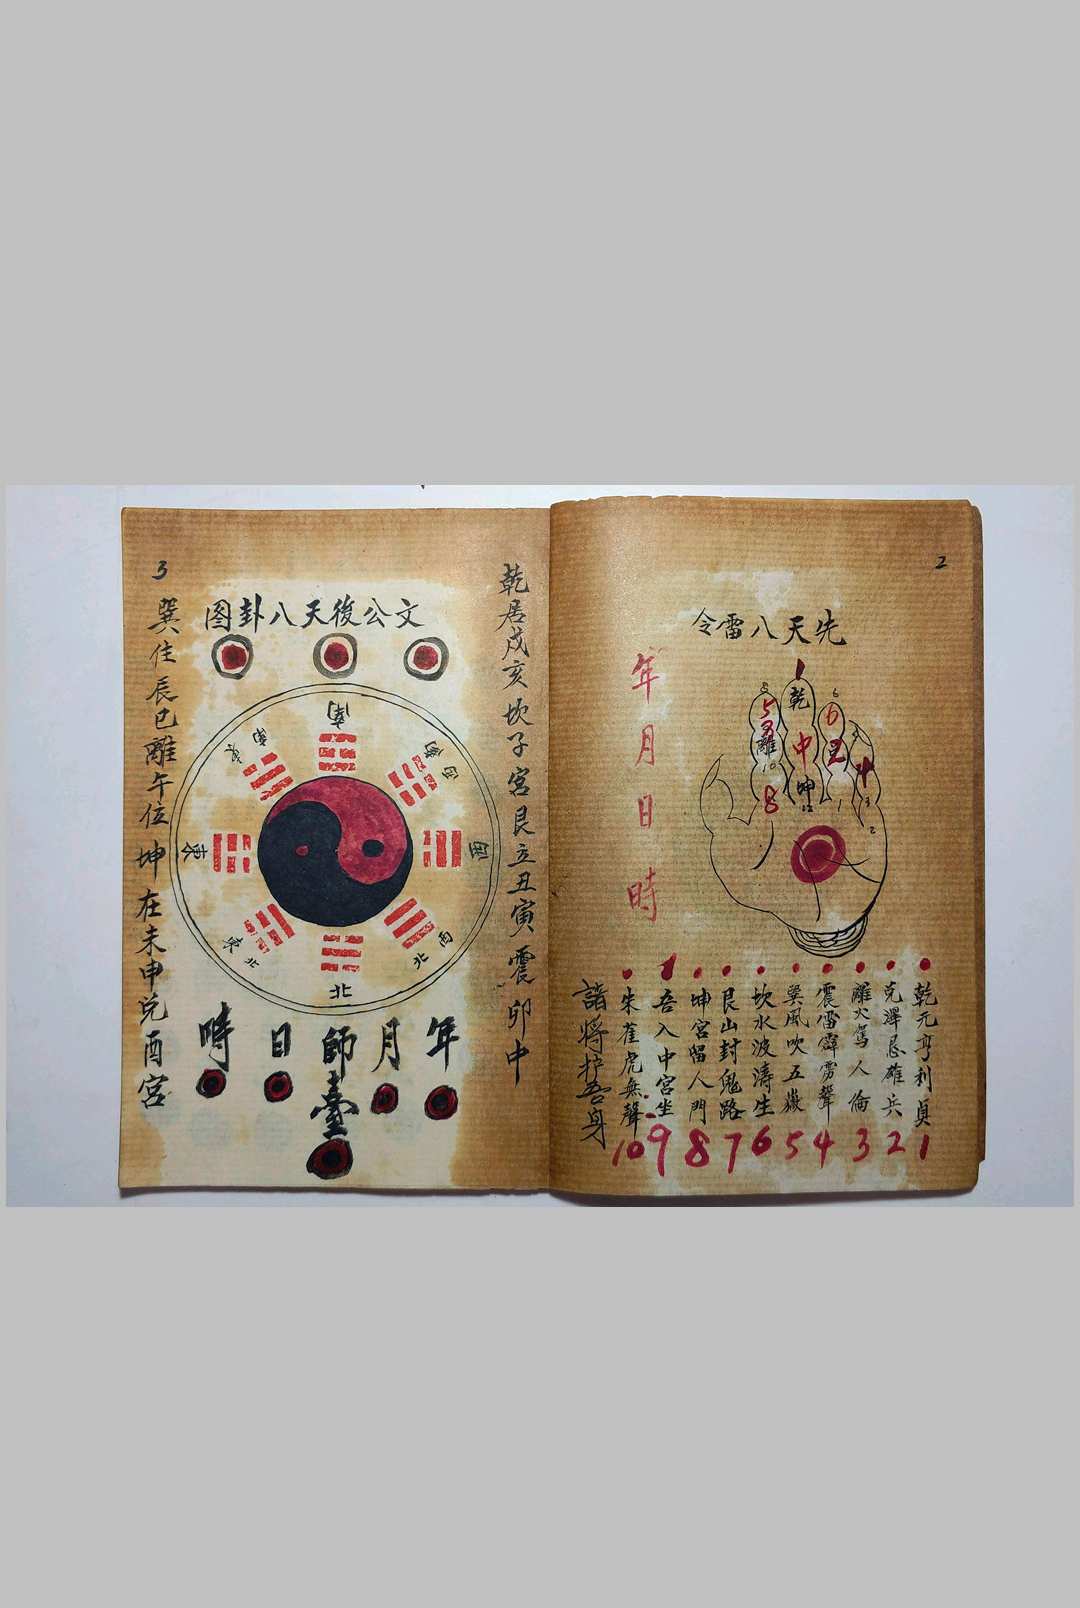 2
先天八雷令
年月日時
1
乾
中
坤
12
5
3
離
10
8
6
6
2
4
1
3
2
乾元亨利貞
1
兑澤忌雄兵
2
離火駕人倫
3
震雷霹雳聲
4
巽風吹五嶽
5
坎水波濤生
6
艮山封鬼路
7
坤宮留人門
8
吾入中宮坐
9
朱雀虎無聲
10
諸將护吾身
3
乾居戌亥坎子宮艮立丑寅震卯中
文公後天八卦图
南
西南
西
西北
北
東北
東
東南
年
月
師臺
日
時
巽住辰巳離午位坤在未申兑酉宮